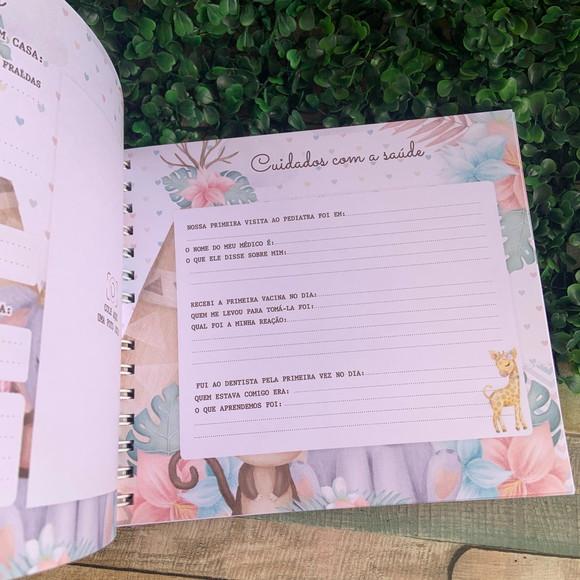 M CASA:
FRALDAS
A:
COLE AQUI
UMA FOTO
Cuidados com a saúde
NOSSA PRIMEIRA VISITA AO PEDIATRA FOI EM:
O NOME DO MEU MÉDICO É:
O QUE ELE DISSE SOBRE MIM:
RECEBI A PRIMEIRA VACINA NO DIA:
QUEM ME LEVOU PARA TOMÁ-LA FOI:
QUAL FOI A MINHA REAÇÃO:
FUI AO DENTISTA PELA PRIMEIRA VEZ NO DIA:
QUEM ESTAVA COMIGO ERA:
O QUE APRENDEMOS FOI: